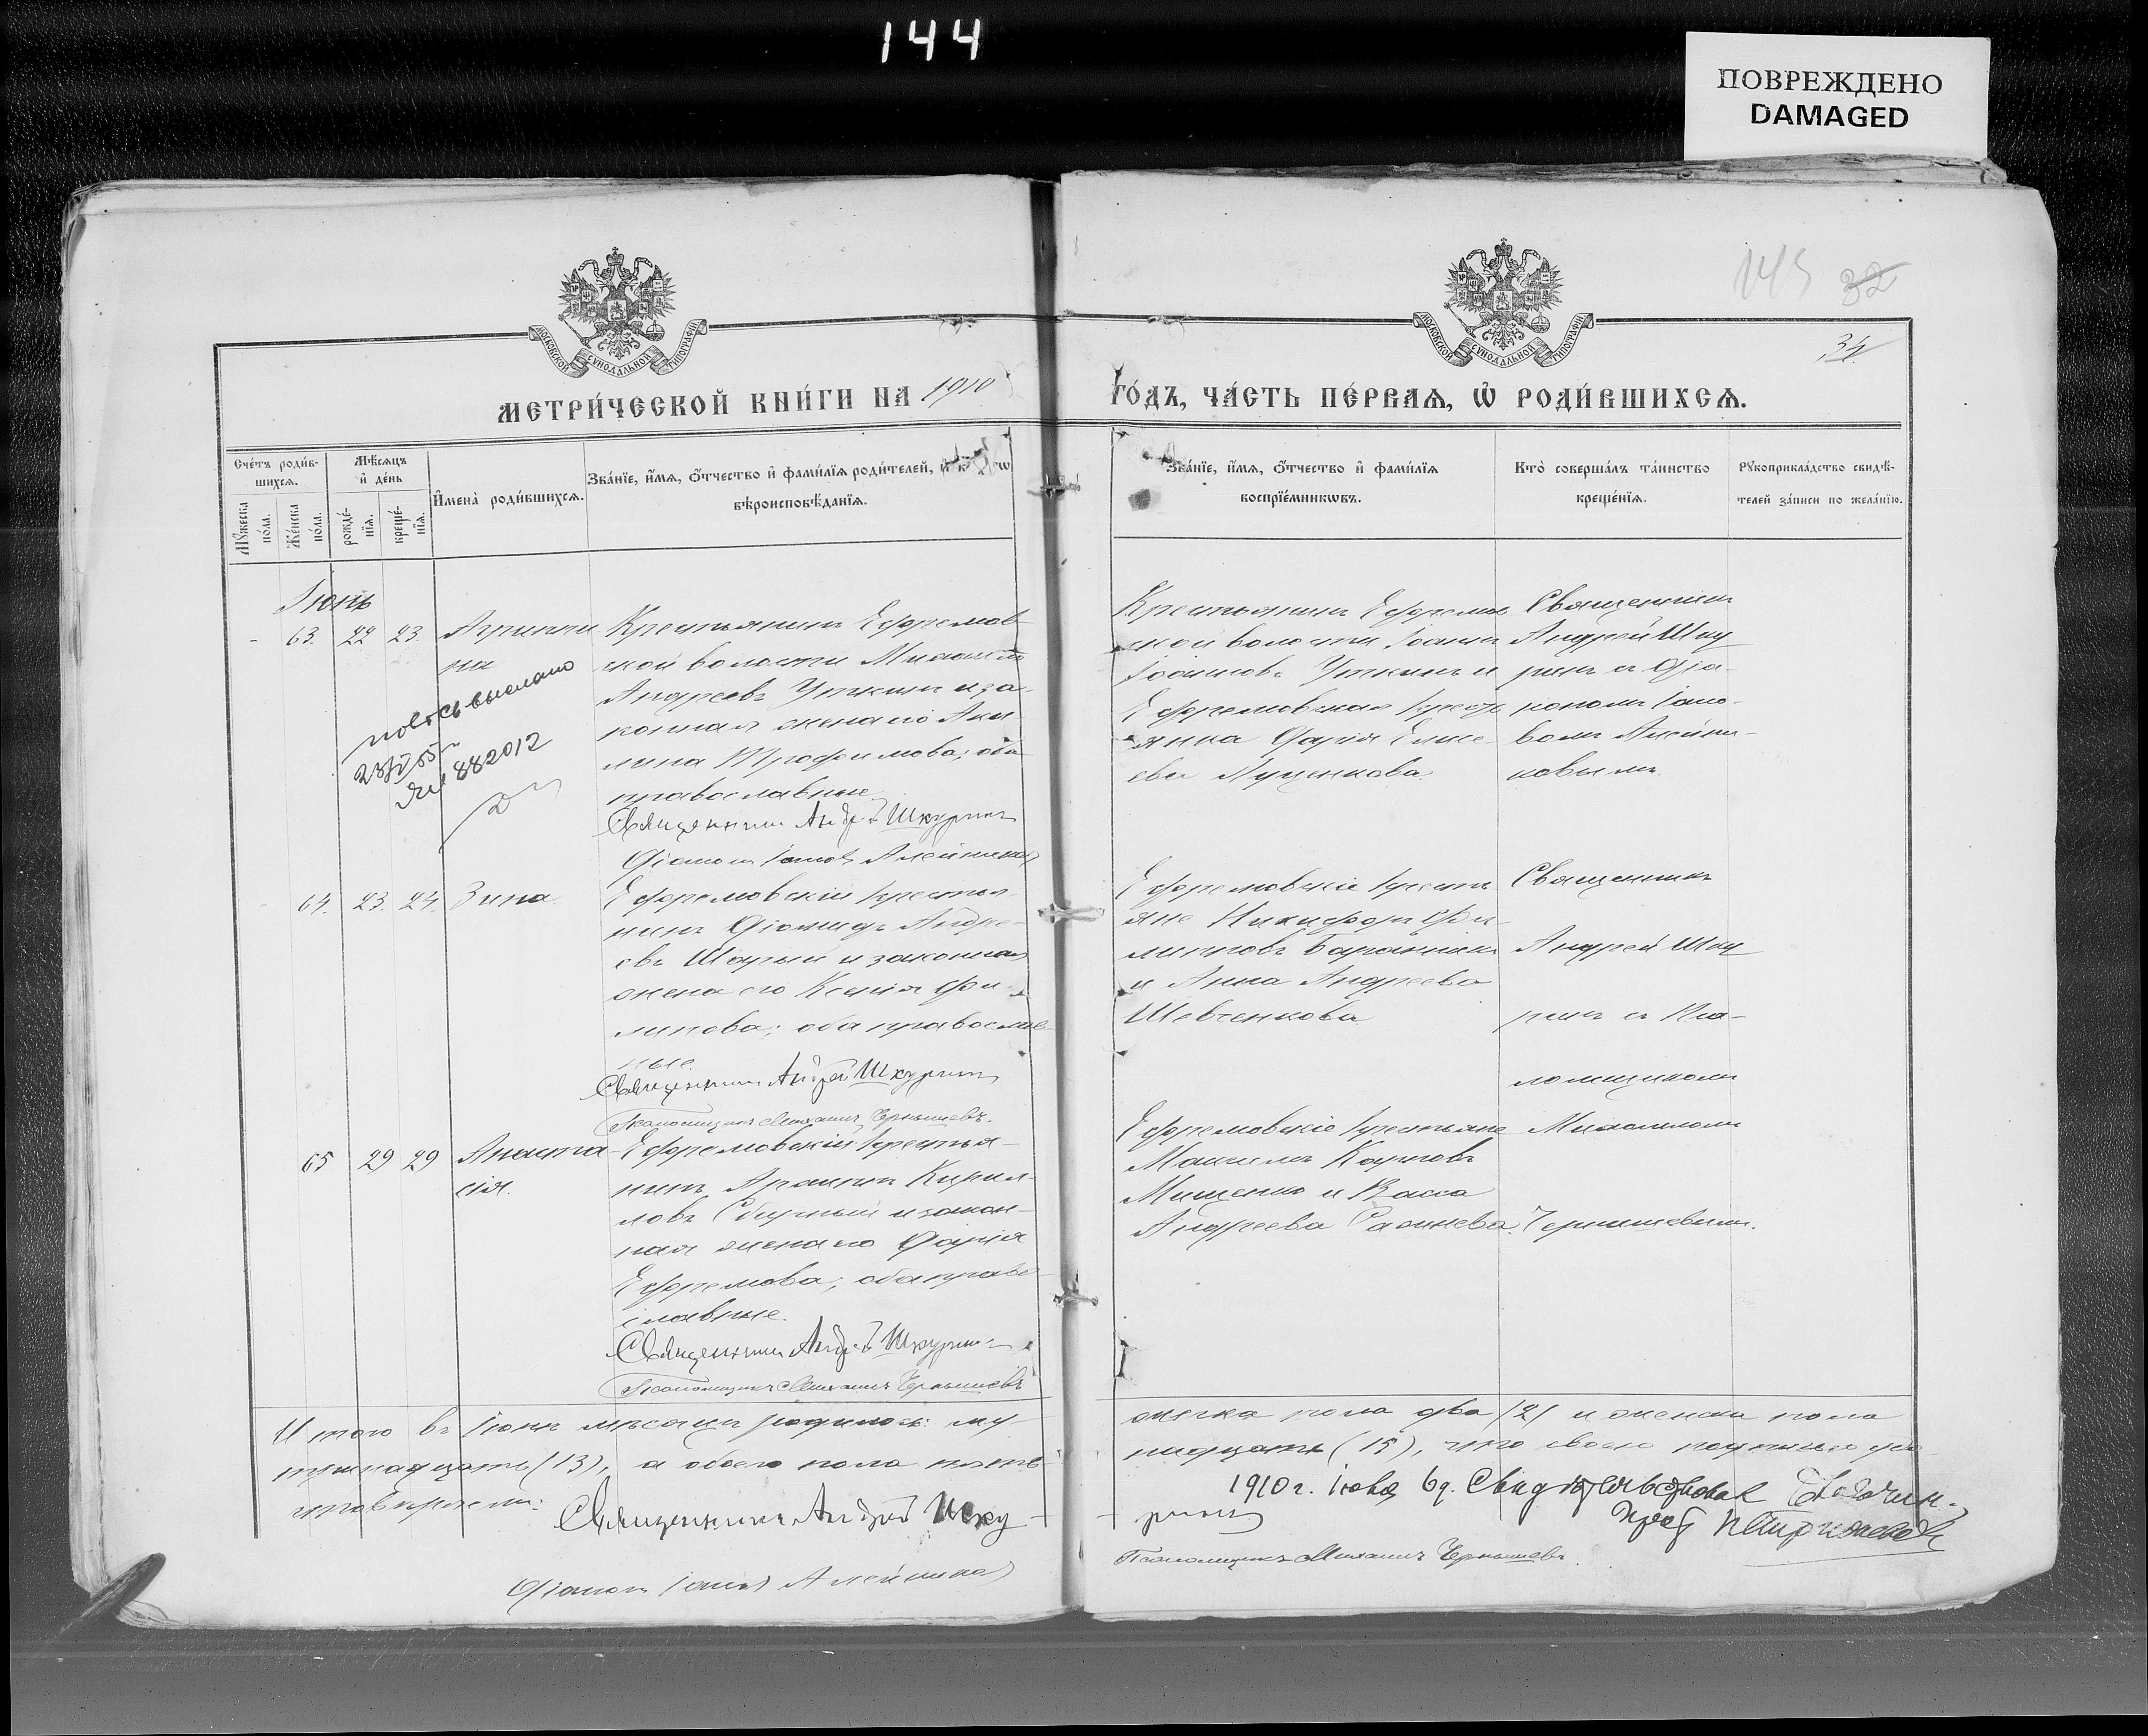 144
ПОВРЕЖДЕНО
DAMAGED
145 32
34
МОСКОВСКОЙ СѴНОДАЛЬНОЙ ТИПОГРАФІИ
МОСКОВСКОЙ СѴНОДАЛЬНОЙ ТИПОГРАФІИ
МЕТРИ́ЧЕСКОЙ КНИ́ГИ НА 1910 ГО́ДЪ, ЧА́СТЬ ПЕ́РВАѦ, Ѡ҆ РОДИ́ВШИХСѦ.
Сче́тъ роди́в-
шихсѧ.
Мꙋ́жеска по́ла.
Же́нска по́ла.
Мѣ́сѧцъ и҆ де́нь
рожде́-нїѧ.
креще́-нїѧ.
И҆мена̀ роди́вшихсѧ.
Зва́нїе, и҆́мѧ, ѻ҆́тчество и҆ фами́лїѧ роди́телей, и҆
вѣроисповѣ́данїѧ.
Зва́нїе, и҆́мѧ, ѻ҆́тчество и҆ фами́лїѧ
воспрїе́мникѡвъ.
Кто̀ соверша́лъ та́инство
креще́нїѧ.
Рꙋкоприкла́дство свидѣ́-
телей за́писи по жела́нїю.
Іюнь
63. 22 23. Агриппи
на
Крестьянинъ Ефремов
ской волости Михаилъ
Андреевъ Уткинъ и за-
конная жена его Аки
лина Трофимова; оба
православные
Священникъ Андрей Шкуринъ
Діаконъ Іаковъ Алейников
повт. св выслано
882012
Крестьянинъ Ефремов
ской волости Іоаннъ
Іоанновъ Уткинъ и
Ефремовская кресть
янка Дарія Елисе-
ева Луценкова
Священникъ
Андрей Шку
ринъ съ Діа-
кономъ Іако-
вомъ Алейни-
ковымъ
64. 23. 24. Зина
Ефремовскій крестья
нинъ Діомидъ Андре-
евъ Шарый и законная
жена его Ксенія Фи-
липова; оба православ
ные.
Священникъ Андрей Шкуринъ
Псаломщикъ Михаилъ Чернышевъ.
Ефремовскіе кресть
яне Никифоръ Фи-
липповъ Баранникъ
и Анна Андреева
Шевченкова
Священникъ
Андрей Шку
ринъ съ Пса-
ломщикомъ
Михаиломъ
Чернышевымъ.
65 29 29 Анаста
сія.
Ефремовскій крестья-
нинъ Кирил-
ловъ и закон-
ная жена его Дарія
Ефремова; оба право
славные.
Священникъ Андрей Шкуринъ
Псаломщикъ Михаилъ Чернышевъ
Ефремовскіе крестьяне
Максимъ Карповъ
Мищенко и Васса
Андреева
Итого въ Іюнѣ мѣсяцѣ родилось: му
жеска пола два (2) и женска пола
тринадцать (13), а обоего пола пят
надцать (15), что своею подписью удо
стовѣряемъ:
Священникъ Андрей Шку
ринъ
1910 г. Іюля 6 д. Свидѣтельствовал Благочин.
Діаконъ Іаковъ Алейников
Псаломщикъ Михаилъ Чернышевъ.